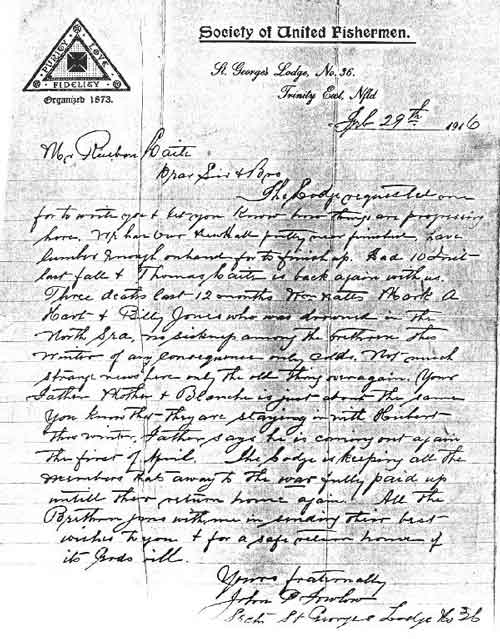 Society of United Fishermen.
PURITY LOVE
FIDELITY
Organized 1873.
St. George's Lodge, No. 36.
Trinity East, Nfld
Feb 29th 1916
Mr Reuben
Dear Sir & Bro
The Lodge requested me
for to write you & let you know how things are progressing
here. We have our new Hall pretty near finished have
lumber enough on hand for to finish up. Had 10
last fall & Thomas is back again with us.
Three deaths last 12 months Wm Mark A
Hart & Billy Jones who was drowned in the
North Sea, no sickness among the brethren this
winter of any consequence only colds. Not much
strange news here only the old thing over again. Your
Father Mother & Blanche is just about the same
You know that they are staying in with Hubert
this winter. Father says he is coming out again
the first of April. The Lodge is keeping all the
members that away to the war fully paid up
untill their return home again. All the
Brethren joins with me in sending their best
wishes to you & for a safe return home if
its Gods will.
Yours fraternally
John
Secty St Georges Lodge No 36